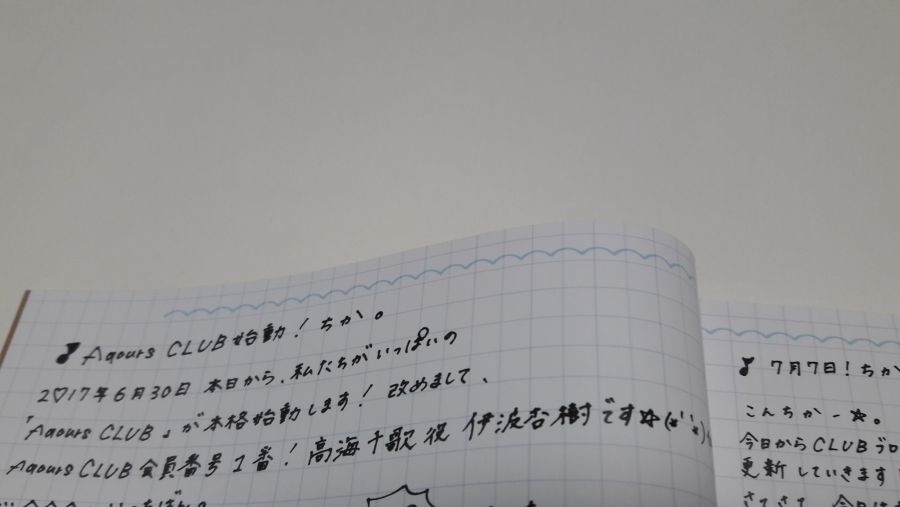 ♪Aqours CLUB始動！ちか。
2♡17年6月30日 本日から、私たちがいっぱいの
「Aqours CLUB」が本格始動します！改めまして、
Aqours CLUB会員番号1番！高海千歌役 伊波杏樹です☆
♪7月7日！ちか
こんちかー☆。
今日からCLUBブロ
更新していきます
さてさて、今日は